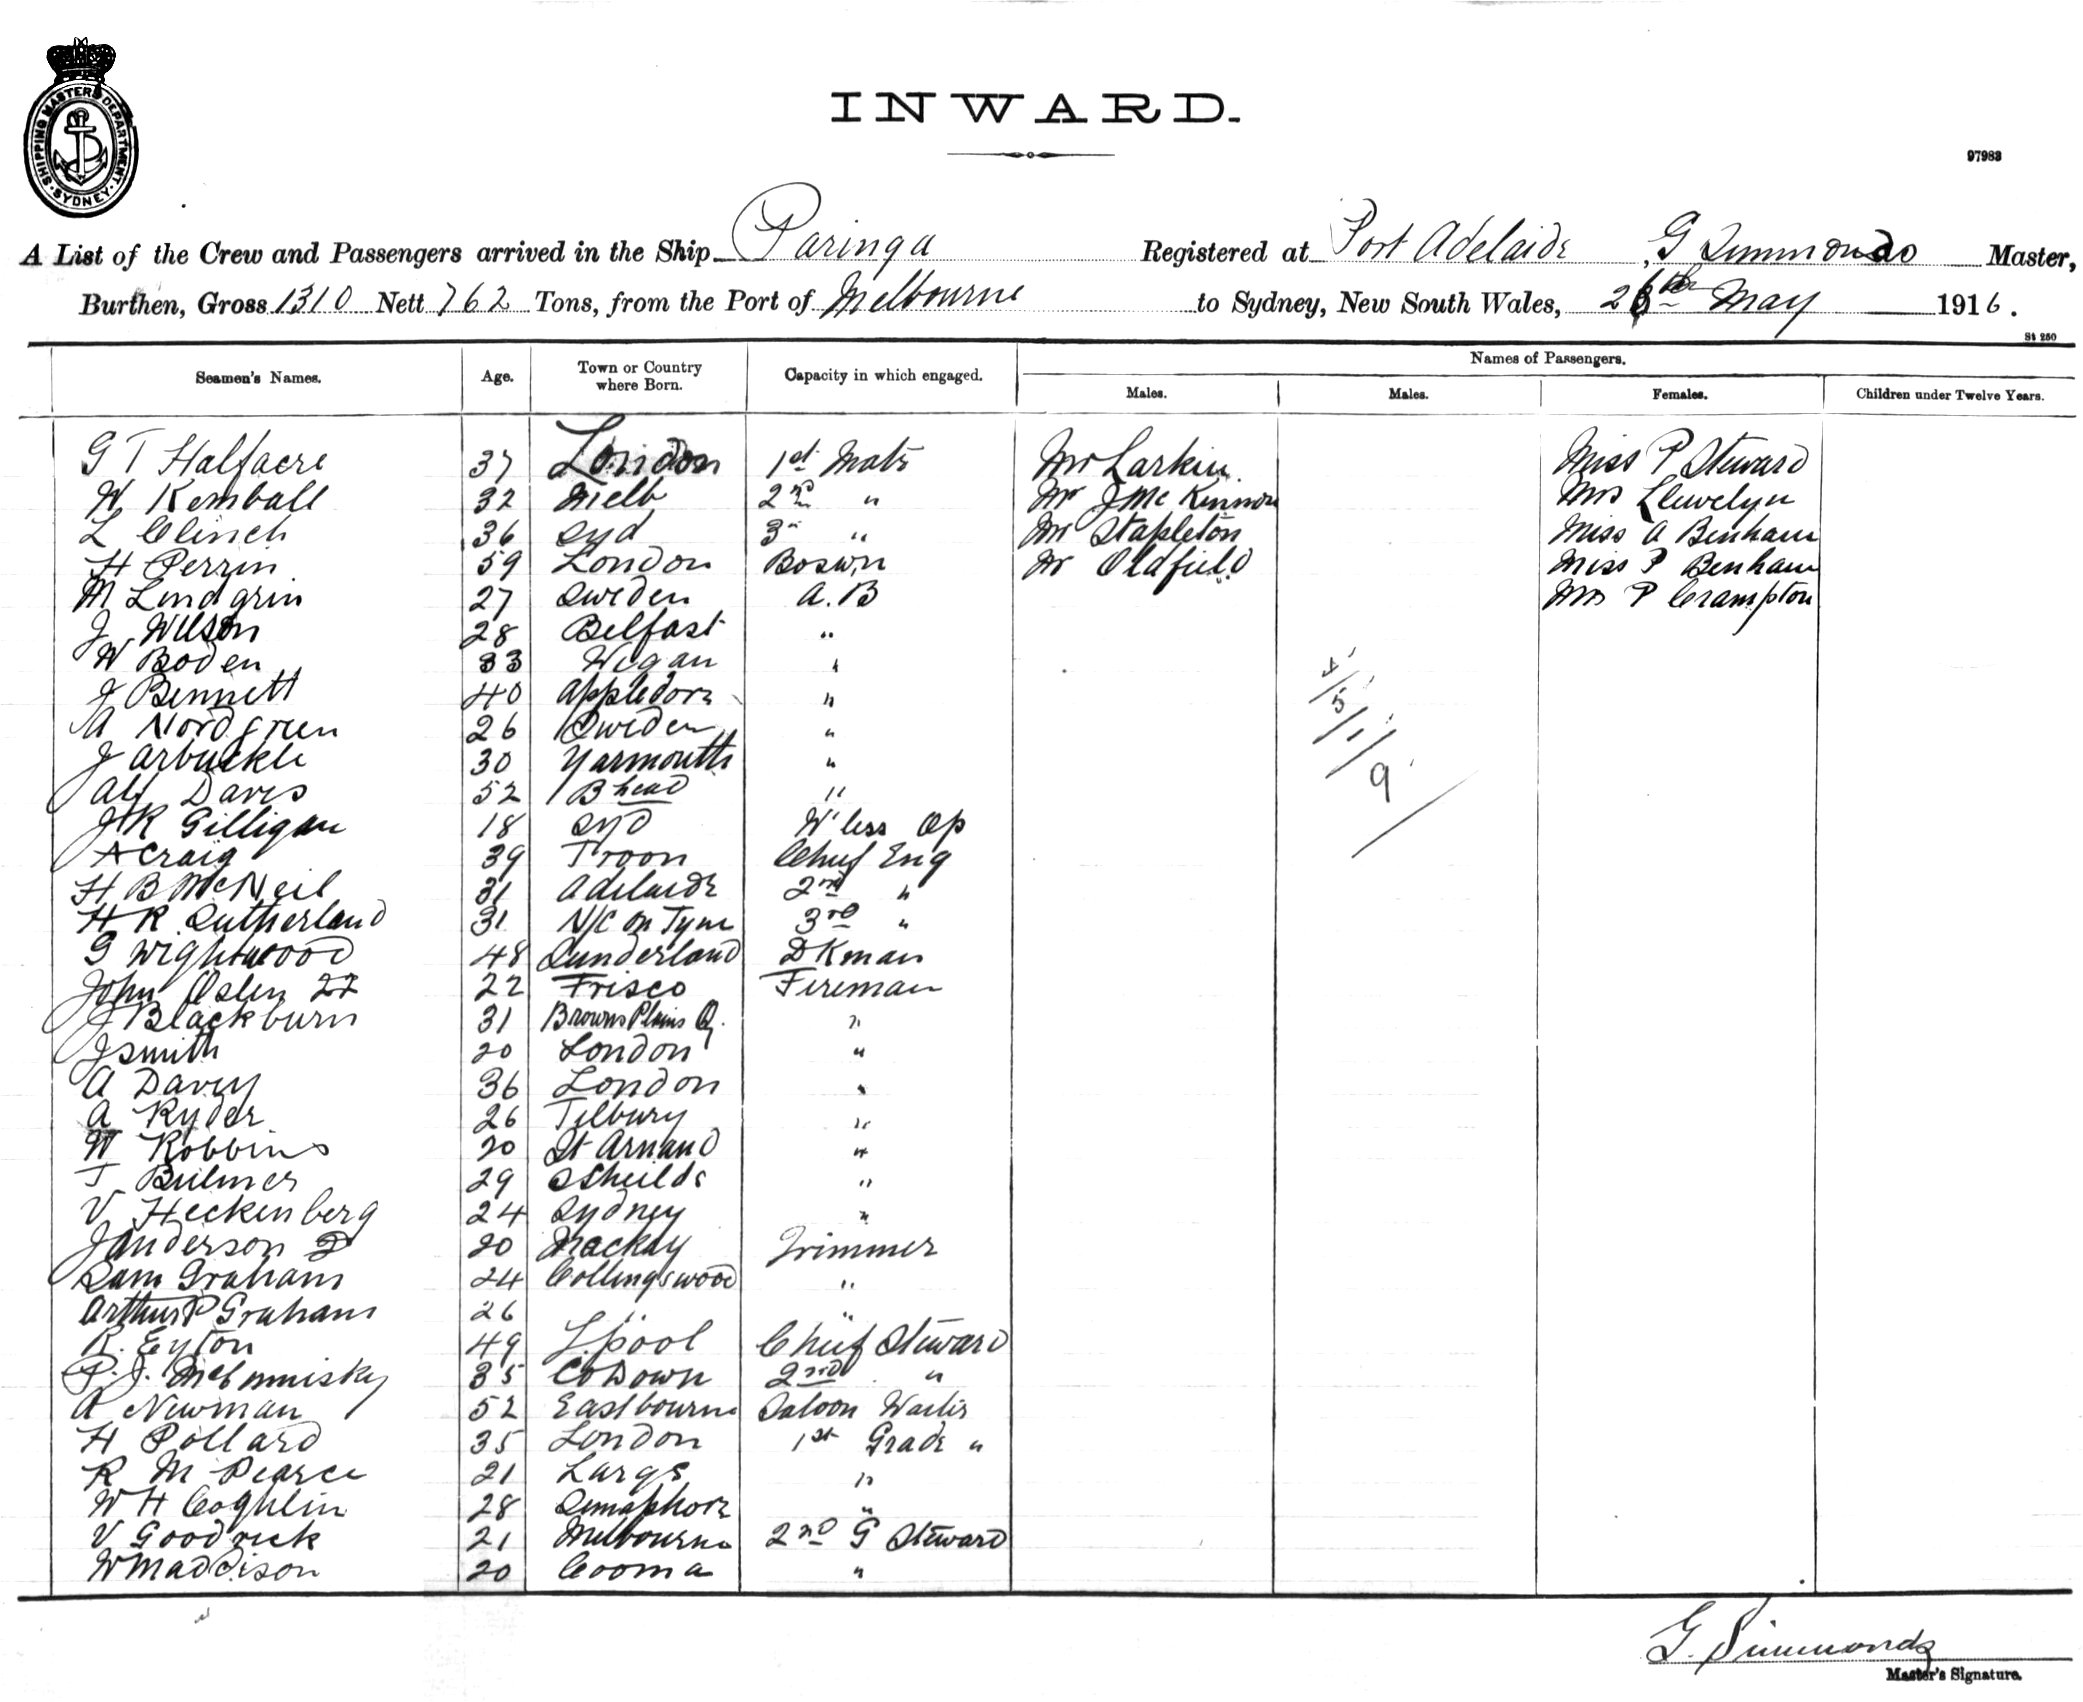 SHIPPING MASTERS DEPARTMENT · SYDNEY ·
INWARD.
97983
A List of the Crew and Passengers arrived in the Ship Paringa Registered at Port Adelaide, G Simmonds Master,
Burthen, Gross 1310 Nett 762 Tons, from the Port of Melbourne to Sydney, New South Wales, 26th May 1916.
St 250
Seamen's Names. Age. Town or Country where Born. Capacity in which engaged. Names of Passengers.
Males. Males. Females. Children under Twelve Years.
G T Halfacre 37 London 1st Mate Mr Larkin Miss P Steward
W Kemball 32 Melb 2nd " Mr J McKinnon Mrs Llewelyn
L Clinch 36 Syd 3 " Mr Stapleton Miss A Benham
H Perrin 59 London Boswn Mr Oldfield Miss P Benham
M Lindgrin 27 Sweden A.B Mrs P Crampton
J Wilson 28 Belfast "
W Boden 33 Wigan "
J Bennett 40 Appledore "
A Nordgreen 26 Sweden "
J Arbuckle 30 Yarmouth "
Alf Davis 52 Bhead "
J K Gilligan 18 Syd W'less Op
A Craig 39 Troon Chief Eng
H B McNeil 31 Adelaide 2nd "
H R Sutherland 31 N/C on Tyne 3rd "
G Wightwood 48 Sunderland DKman
John Oslen 22 22 Frisco Fireman
J Blackburn 31 Browns Plains Q. "
J Smith 20 London "
A Davey 36 London "
A Ryder 26 Tilbury "
W Robbins 20 St Arnaud "
T Bulmer 29 SSheilds "
V Heckenberg 24 Sydney "
J Anderson 20 Mackay Trimmer
Sam Graham 24 Collingswood "
Arthur P Graham 26 " "
R. Eyton 49 L.pool Chief Steward
P. J. McComisky 35 Co Down 2nd "
A Newman 52 Eastbourne Saloon Waiter
H Pollard 35 London 1st Grade "
R M Pearce 21 Largs "
W H Coghlin 28 Semaphore "
V Goodrick 21 Melbourne 2nd G Steward
W Maddison 20 Cooma "
4/5/1/9
G. Simmonds
Master's Signature.